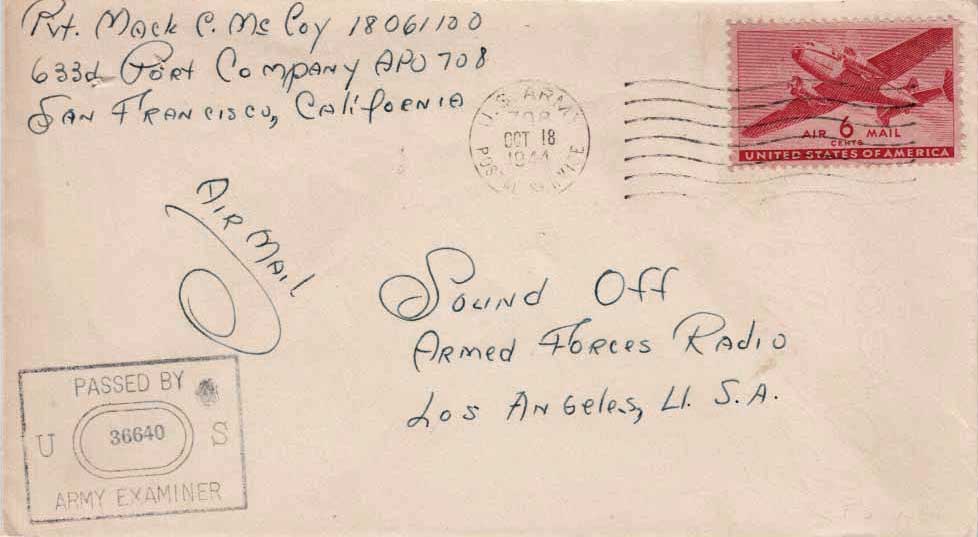 Pvt. Mack C. McCoy 18061100
633d Port Company APO 708
San Francisco, California
U.S. ARMY
708
OCT 18
1944
POSTAL SERVICE
AIR 6 MAIL
CENTS
UNITED STATES OF AMERICA
Air Mail
Sound Off
Armed Forces Radio
Los Angeles, U. S. A.
PASSED BY
U 36640 S
ARMY EXAMINER